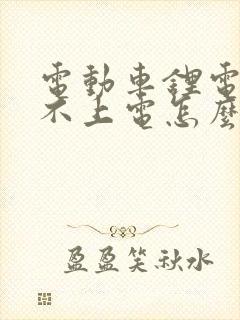 電動車鋰電
不上電怎麼
盈盈笑秋水